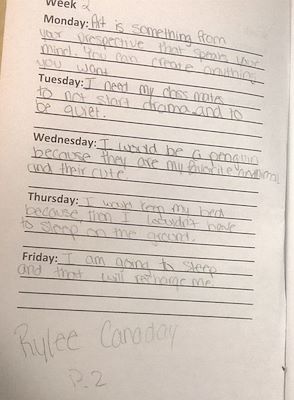 Week 2
Monday: Art is something from
your prespective that speaks your
mind. You can create anything
you want.
Tuesday: I need my class mates
to not start drama and to
be quiet.
Wednesday: I would be a penguin
because they are my favorite animal
and their cute.
Thursday: I would keep my bed
because then I wouldn't have
to sleep on the ground.
Friday: I am going to sleep
and that will recharge me.
Rylee Canaday
P.2